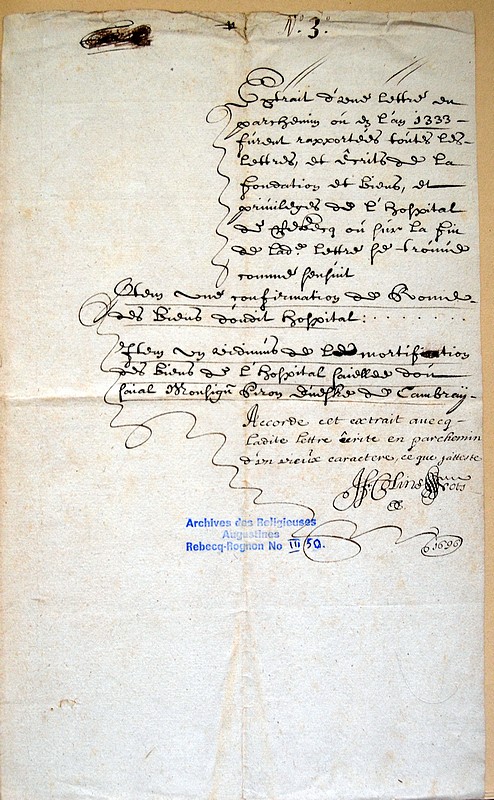 N.° 3.
Extrait d'une lettre en
parchemin où ez l'an 1333
furent rapportées toutes les
lettres, et Écrits de la
fondation et Biens, et
privileges de l'hospital
de Rebecq où sur la fin
de lad.e lettre se trouve
comme sensuit
Item une confirmation de
des Biens doudit hospital:
Item un vidimus de le mortification
des Biens de l'hospital saiellee dou
saial Monsigr Piron Eveske de Cambray
Accorde cet extrait avecq
ladite lettre êcrite en parchemin
d'un vieux caractere, ce que j'atteste
Archives des Religieuses
Augustines
Rebecq-Rognon No III 50.